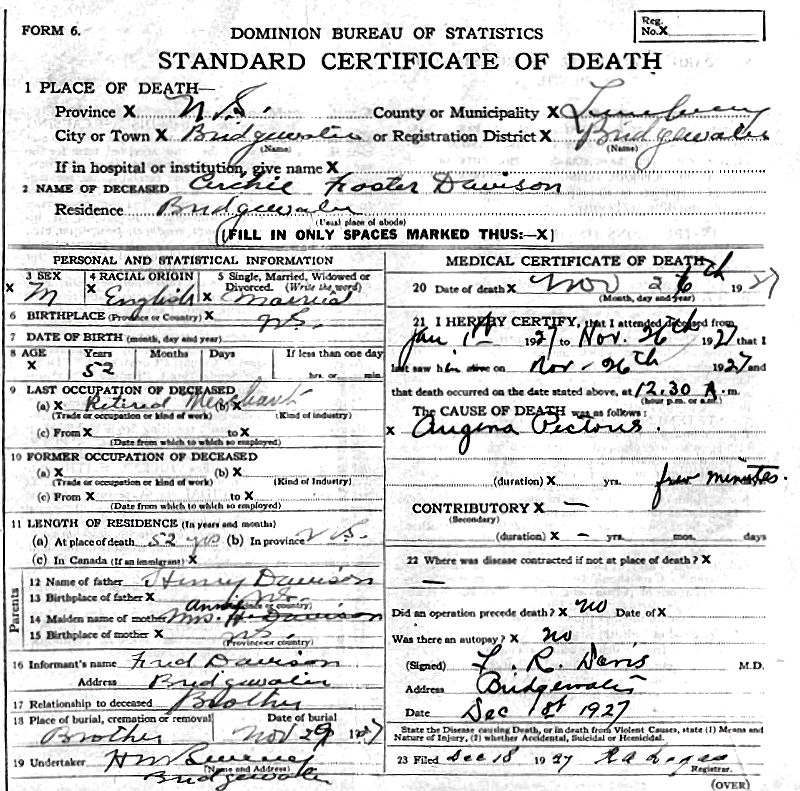 FORM 6.
DOMINION BUREAU OF STATISTICS
Reg. No. X
STANDARD CERTIFICATE OF DEATH
1 PLACE OF DEATH—
Province X N. S. County or Municipality X Lunenburg
City or Town X Bridgewater or Registration District X Bridgewater
(Name) (Name)
If in hospital or institution, give name X
2 NAME OF DECEASED Archie Foster Davison
Residence Bridgewater
(Usual place of abode)
(FILL IN ONLY SPACES MARKED THUS:—X)
PERSONAL AND STATISTICAL INFORMATION
3 SEX 4 RACIAL ORIGIN 5 Single, Married, Widowed or Divorced. (Write the word)
X M X English X Married
6 BIRTHPLACE (Province or Country) X N.S.
7 DATE OF BIRTH (month, day and year)
8 AGE Years Months Days If less than one day
X 52 hrs. or min.
9 LAST OCCUPATION OF DECEASED
(a) X Retired Merchant (b) X
(Trade or occupation or kind of work) (Kind of industry)
(c) From X to X
(Date from which to which so employed)
10 FORMER OCCUPATION OF DECEASED
(a) X (b) X
(Trade or occupation or kind of work) (Kind of Industry)
(c) From X to X
(Date from which to which so employed)
11 LENGTH OF RESIDENCE (In years and months)
(a) At place of death 52 yrs (b) In province N.S.
(c) In Canada (If an immigrant) X
Parents
12 Name of father Henry Davison
13 Birthplace of father X N.S.
(Province or country)
Annie
14 Maiden name of mother Mrs. H. Davison
15 Birthplace of mother X N.S.
(Province or country)
16 Informant's name Fred Davison
Address Bridgewater
17 Relationship to deceased Brother
18 Place of burial, cremation or removal Date of burial
Brother Nov 29 1927
19 Undertaker
(Name and Address)
Bridgewater
MEDICAL CERTIFICATE OF DEATH
20 Date of death X Nov 26th 1927
(Month, day and year)
21 I HEREBY CERTIFY, that I attended deceased from
Jan 1st 1927 to Nov. 26th 1927 that I
last saw him alive on Nov - 26th 1927 and
that death occurred on the date stated above, at 12.30 A.m.
(hour p.m. or a.m.)
The CAUSE OF DEATH was as follows:
X Angina Pectoris.
(duration) X yrs. few minutes.
CONTRIBUTORY X —
(Secondary)
(duration) X – yrs. mos. days
22 Where was disease contracted if not at place of death? X
—
Did an operation precede death? X no Date of X
Was there an autopsy? X no
(Signed) F. R. Davis M.D.
Address Bridgewater
Date Dec 1st 1927
State the Disease causing Death, or in death from Violent Causes, state (1) Means and
Nature of Injury, (2) whether Accidental, Suicidal or Homicidal.
23 Filed Dec 18 1927
Registrar.
(OVER)